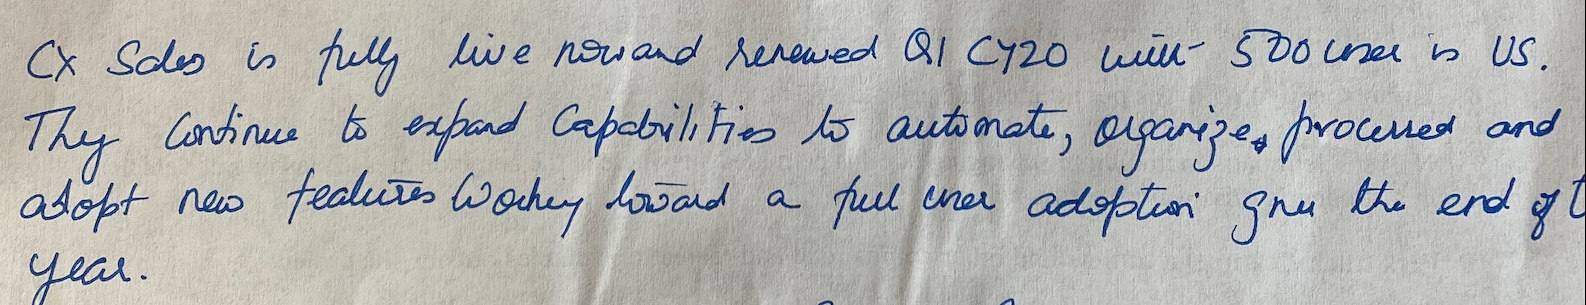 CX Sales is fully live now and renewed Q1 CY20 with 500 user is US.
They continue to expand Capabilities to automate, organize, processed and
adopt new features Working toward a full user adoption the end of t
year.